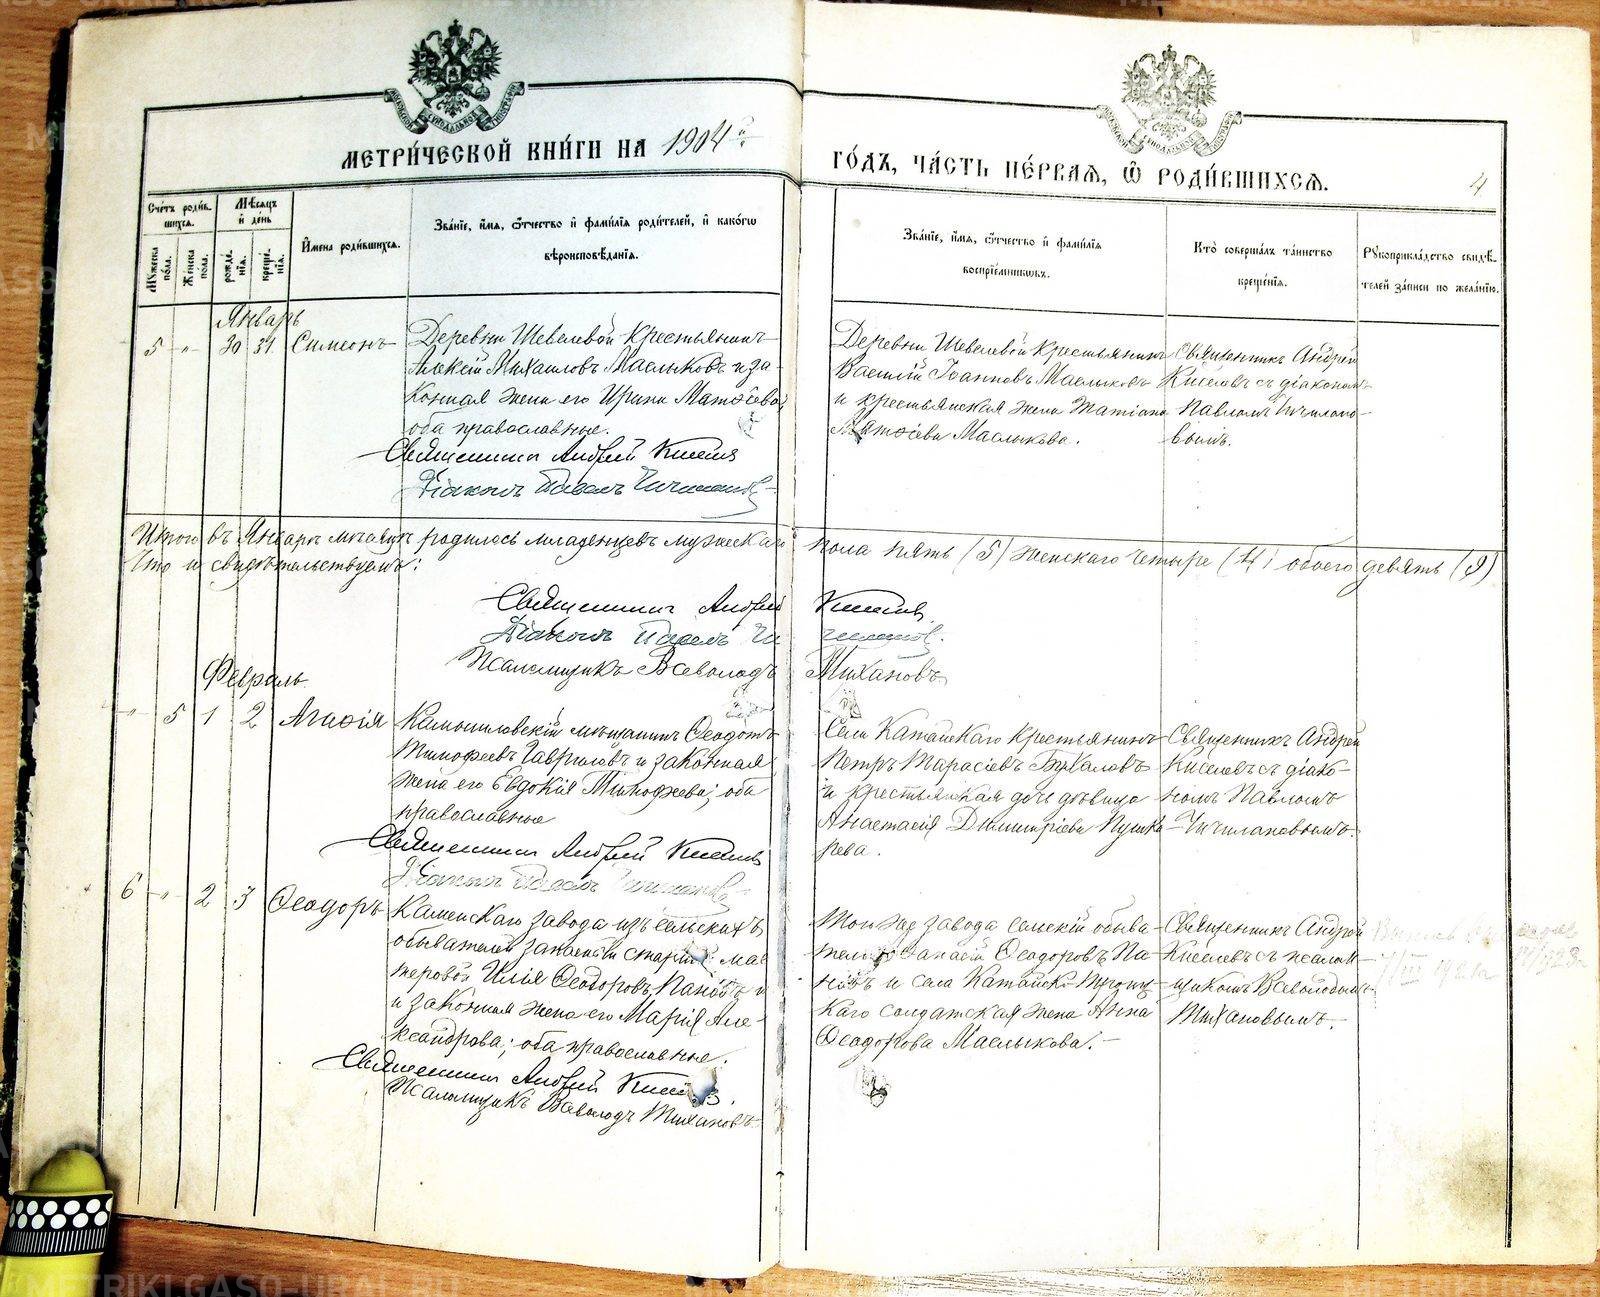 МЕТРИ́ЧЕСКОЙ КНИ́ГИ НА 1904 й
ГО́ДЪ, ЧА́СТЬ ПЕ́РВАЯ, Ѿ РОДИ́ВШИХСЯ.
4
Сче́тъ роди́вшихся.
Мѣ́сяцъ и́ де́нь
И́мена роди́вшихся.
Зва́нїе, и́мя, ѻ҆́тчество и́ фами́лїя роди́телей, и́ како́гѡ
вѣроисповѣ́данїя.
Зва́нїе, и́мя, ѻ҆́тчество и́ фами́лїя
воспрїе́мниковъ.
Кто̀ соверша́лъ та́инство
креще́нїя.
Рꙋкоприкла́дство свидѣ́-
телей за́писи по жела́нїю.
Мꙋ́жеска по́ла.
Же́нска по́ла.
рожде́нїя.
креще́нїя.
Январь
5 - " - 30 31 Симеонъ
Деревни Шевелевой крестьянинъ
Алексій Михаиловъ Маслыковъ и за-
конная жена его Ирина Матѳіева,
оба православные.
Священникъ Андрей Киселевъ
Діаконъ Павелъ Чичилановъ
Деревни Шевелевой крестьянинъ
Василій Іоанновъ Маслыковъ
и крестьянская жена Татіана
Матѳіева Маслыкова.
Священникъ Андрей
Киселевъ съ діакономъ
Павломъ Чичилано-
вымъ.
Итого въ Январѣ мѣсяцѣ родилось младенцевъ мужескаго пола пять (5) женскаго четыре (4) обоего девять (9)
Что и свидѣтельствуемъ:
Священникъ Андрей Киселевъ
Діаконъ Павелъ Чичилановъ.
Псаломщикъ Всеволодъ Тихановъ
Февраль
- " - 5 1 2 Агаѳія
Камышловскій мѣщанинъ Ѳеодотъ
Тимофеевъ Гавриловъ и законная
жена его Евдокія Тимофеева; оба
православные
Священникъ Андрей Киселевъ
Діаконъ Павелъ Чичилановъ
Села Катайскаго крестьянинъ
Петръ Тарасіевъ Бухаловъ
и крестьянская дочь дѣвица
Анастасія Димитріева Пушка-
рева.
Священникъ Андрей
Киселевъ съ діако-
номъ Павломъ
Чичилановымъ.
6 - " - 2 3 Ѳеодоръ
Каменскаго завода изъ сельскихъ
обывателей запасный старшій мас
теровой Илія Ѳеодоровъ Пановъ
и законная жена его Марія Але-
ксандрова; оба православные.
Священникъ Андрей Киселевъ.
Псаломщикъ Всеволодъ Тихановъ
Того же завода сельскій обыва-
тель Аѳанасій Ѳеодоровъ Па-
новъ и села Катайско-Троиц-
каго солдатская жена Анна
Ѳеодорова Маслыкова.
Священникъ Андрей
Киселевъ съ псалом-
щикомъ Всеволодомъ
Тихановымъ.